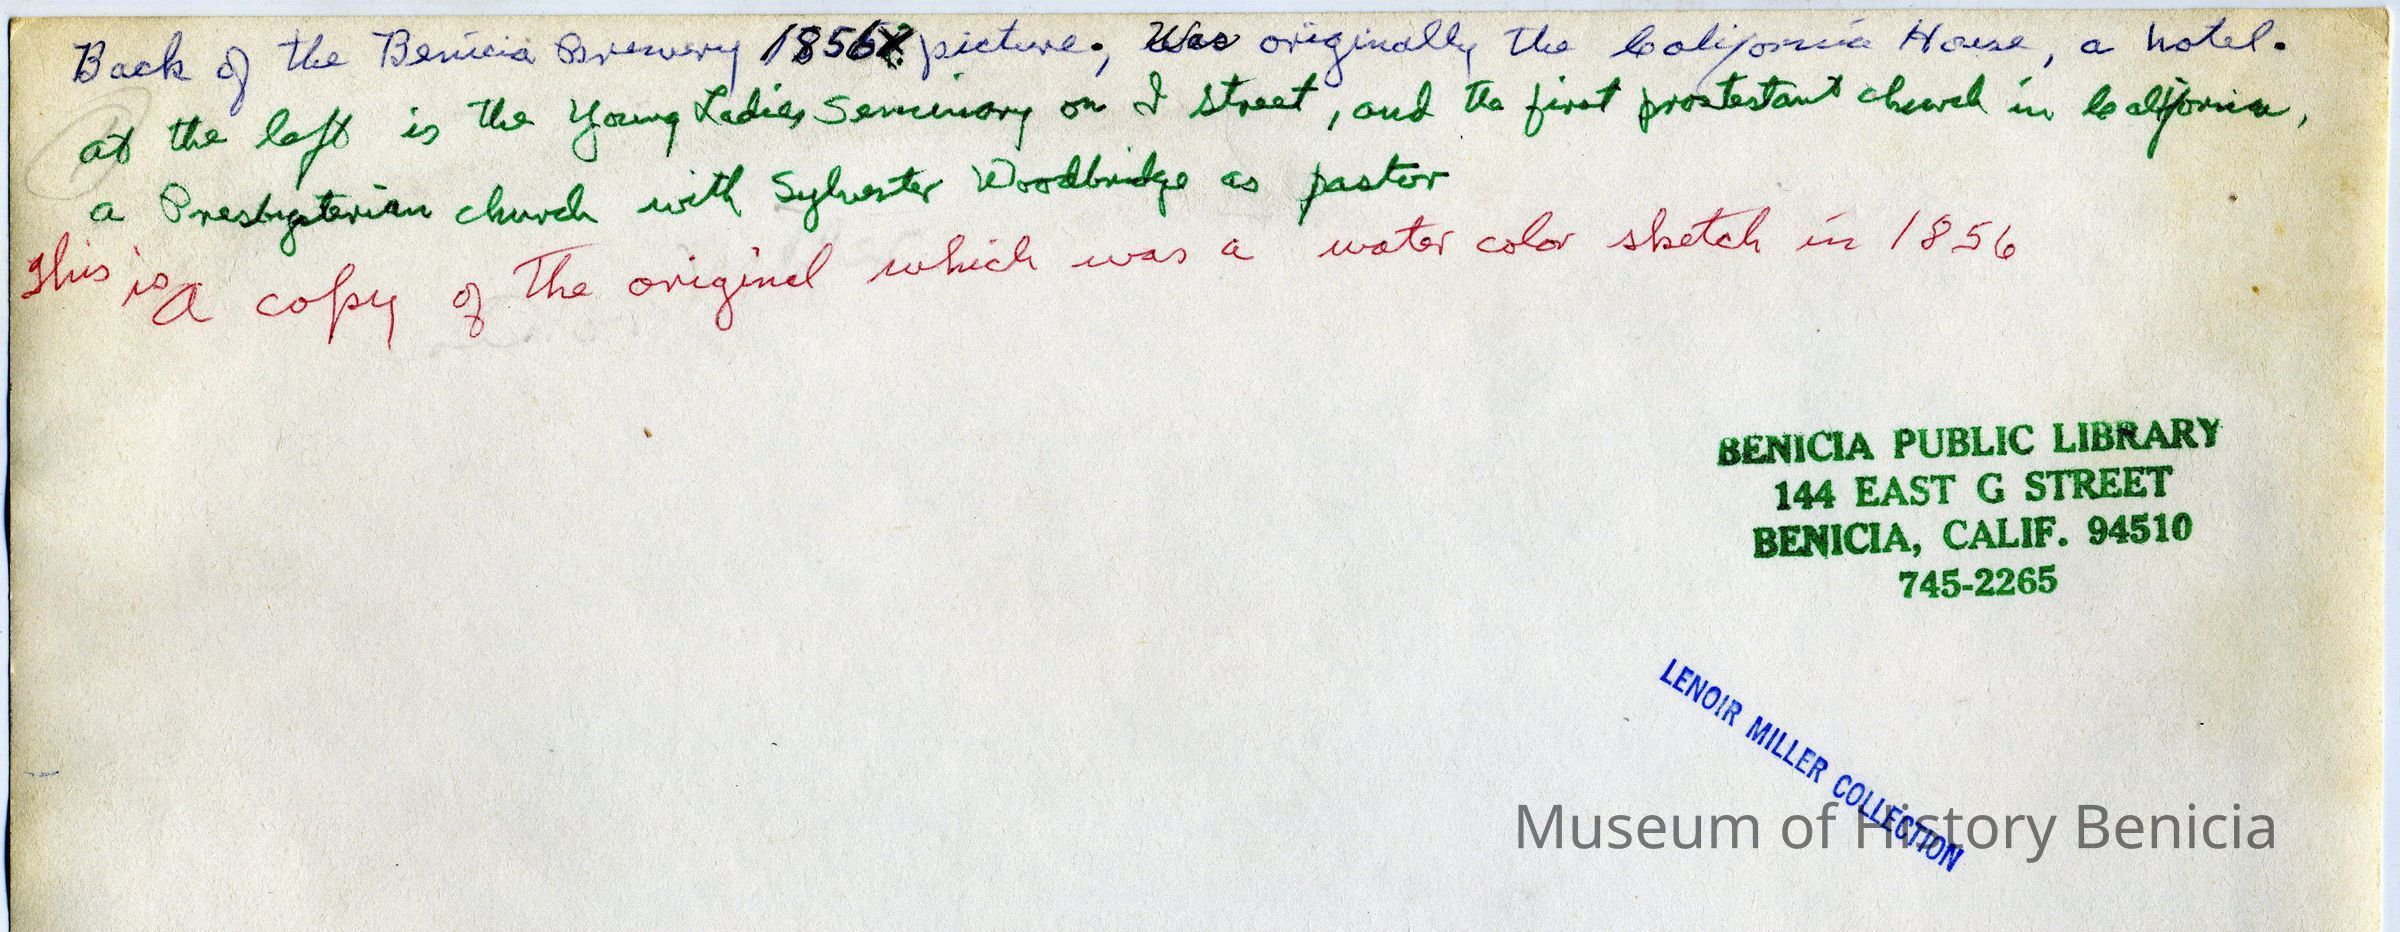 Back of the Benicia Brewery 1856? picture., Was originally the California House, a hotel.
at the left is the Young Ladies Seminary on I Street, and the first prostestant church in California,
a Presbyterian church with Sylvester Woodbridge as pastor
This is a copy of the original which was a water color sketch in 1856
BENICIA PUBLIC LIBRARY
144 EAST G STREET
BENICIA, CALIF. 94510
745-2265
LENOIR MILLER COLLECTION
Museum of History Benicia